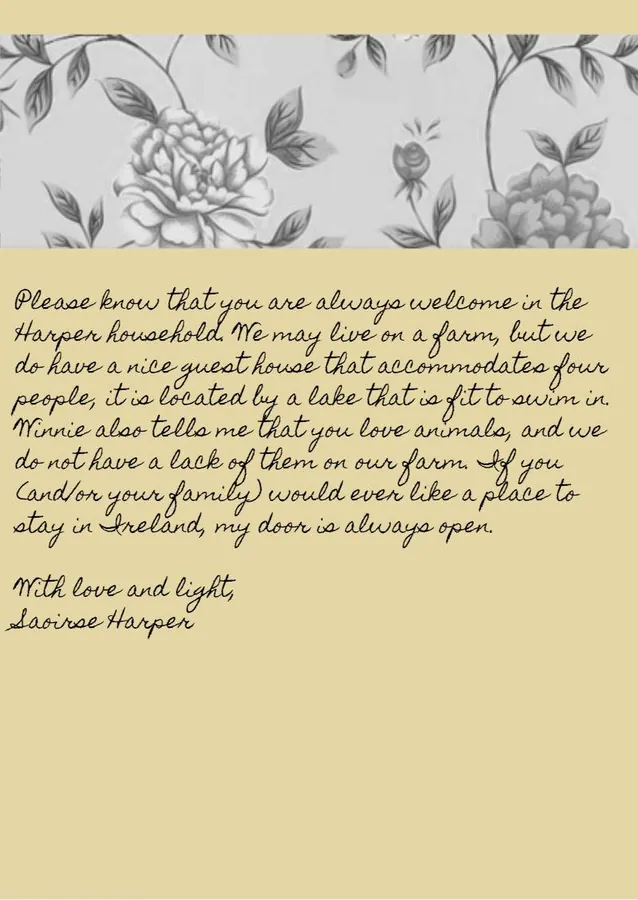 Please know that you are always welcome in the
Harper household. We may live on a farm, but we
do have a nice guest house that accommodates four
people, it is located by a lake that is fit to swim in.
Winnie also tells me that you love animals, and we
do not have a lack of them on our farm. If you
(and/or your family) would ever like a place to
stay in Ireland, my door is always open.

With love and light,
Saoirse Harper